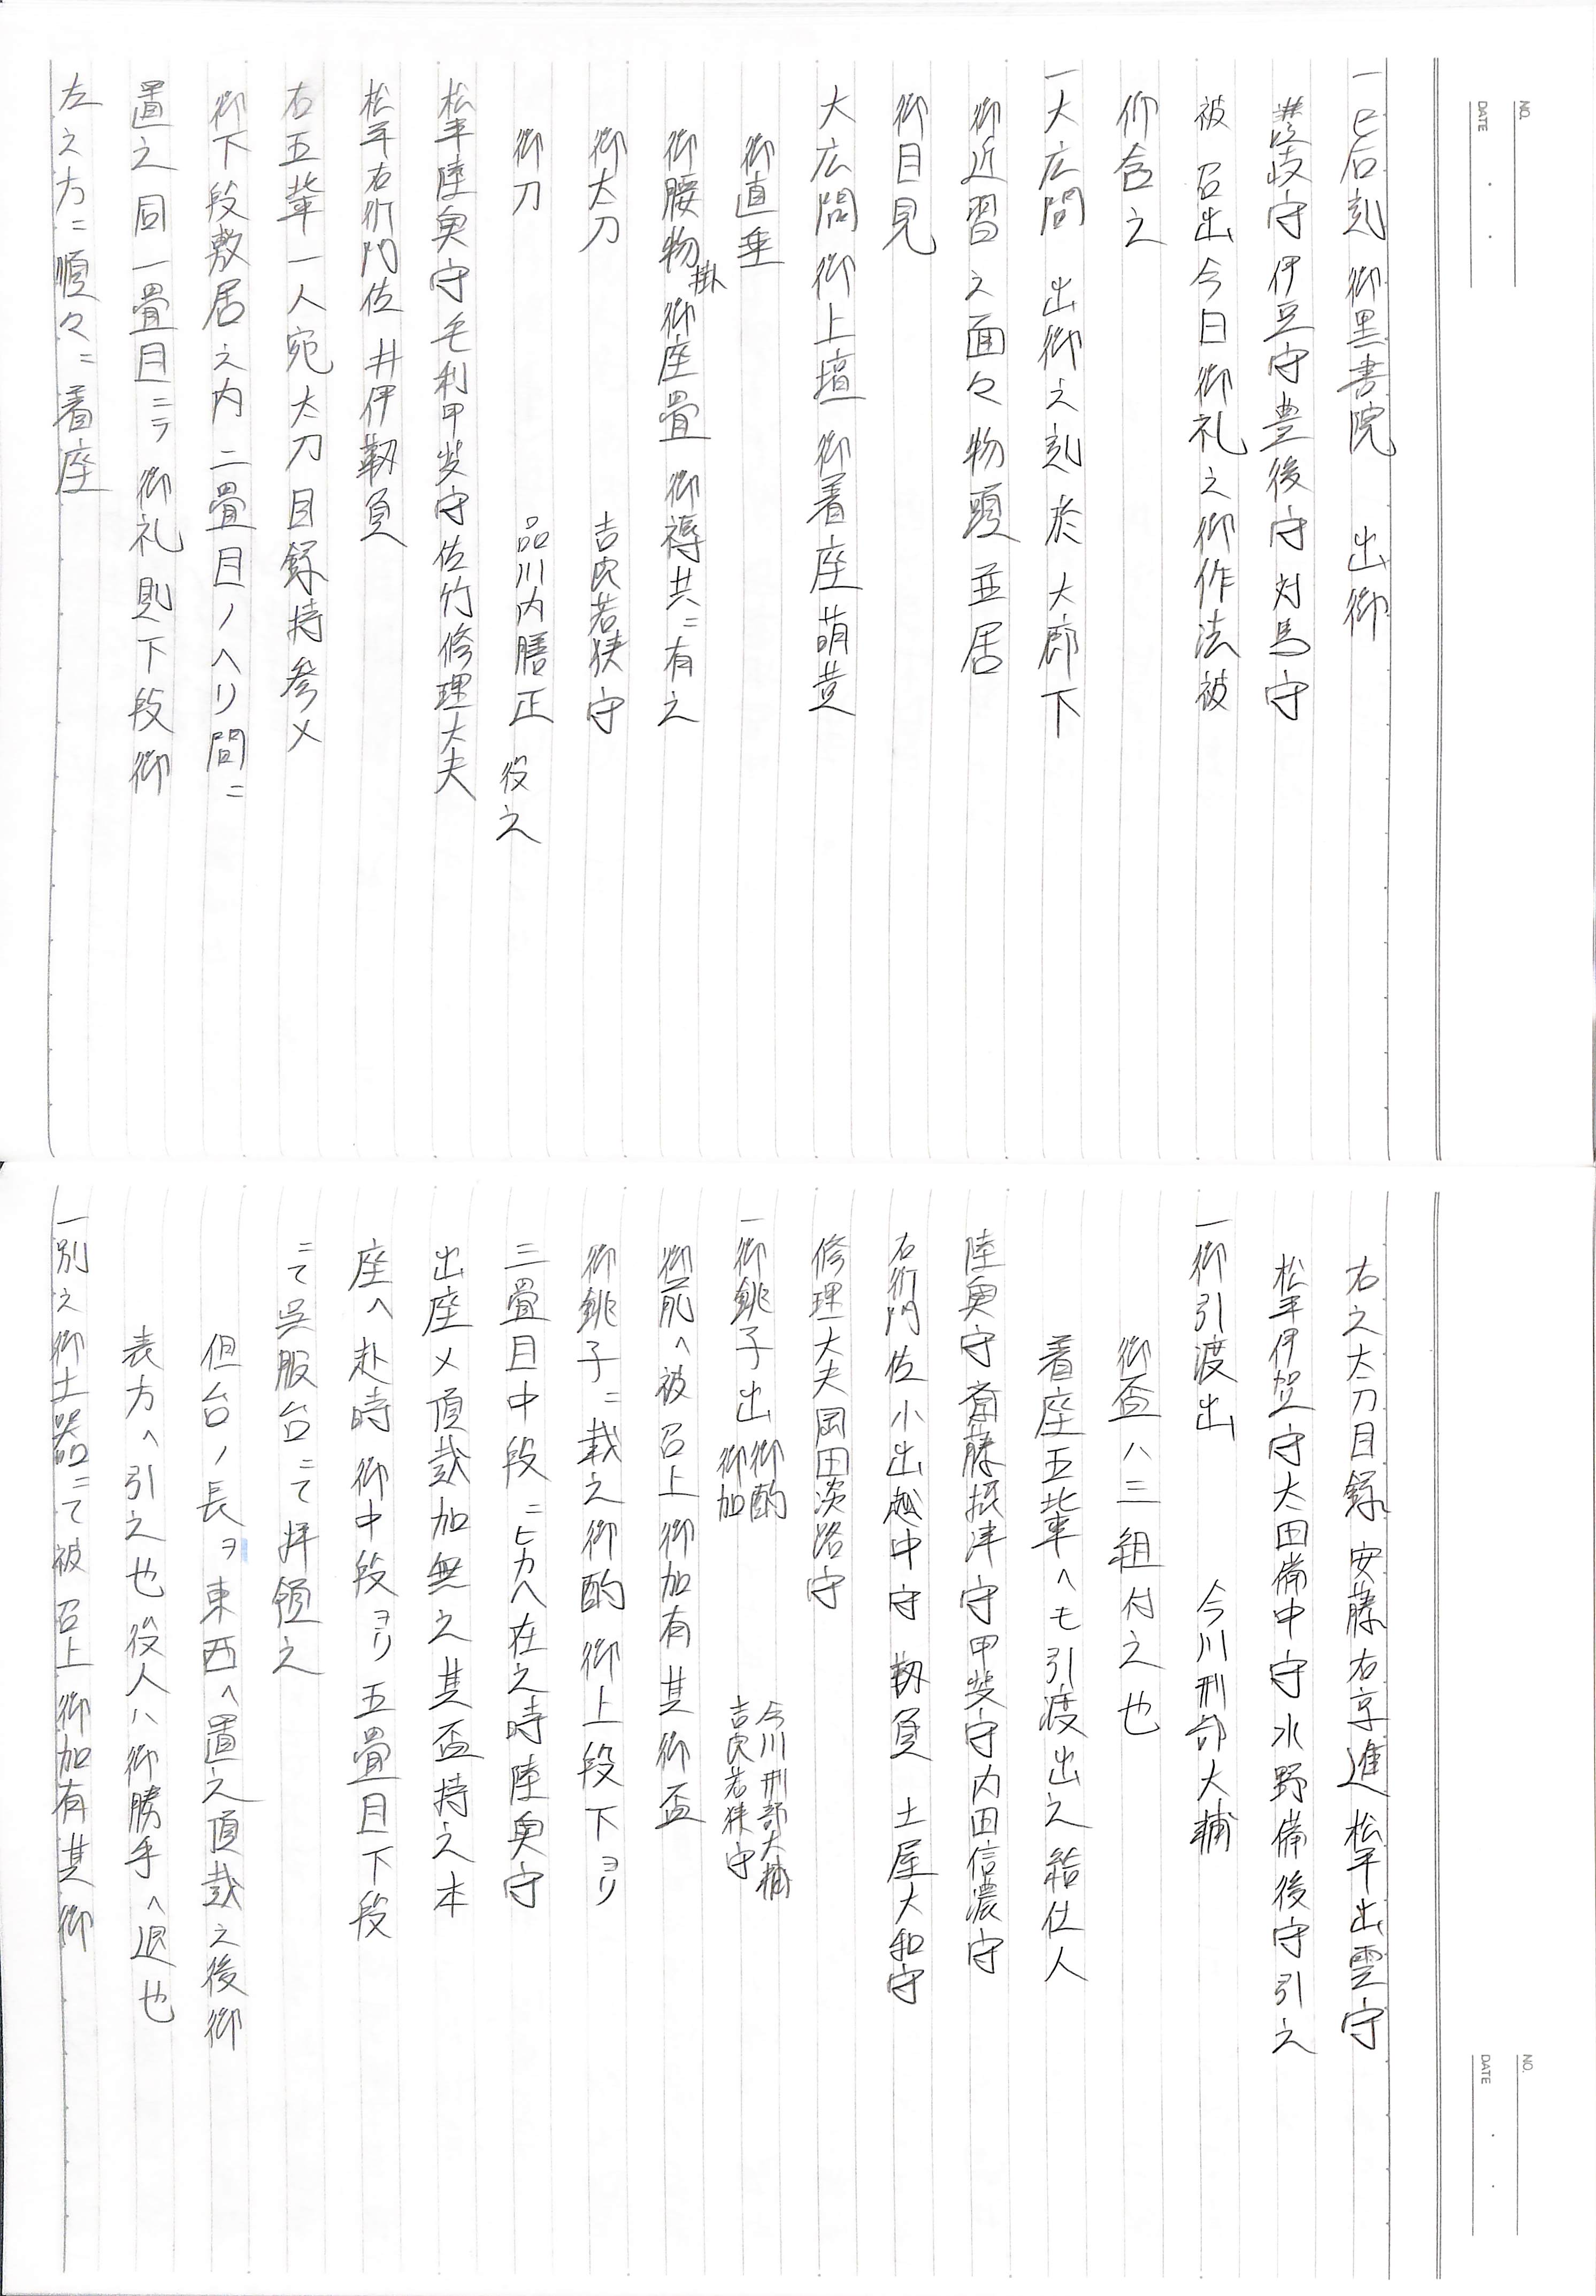 NO.
DATE
一巳后刻 御黒書院 出御
讃岐守 伊豆守 豊後守 対馬守
被 召出 今日 御礼之御作法被
仰含之
一大広間 出御之刻 於 大廊下
御近習之面々 物頭 並居
御目見
大広間 御上壇 御着座 萌黄
御直垂
御腰物掛 御座畳 御褥共ニ有之
御太刀 吉良若狭守
御刀 品川内膳正 役之
松平陸奥守 毛利甲斐守 佐竹修理大夫
松平右衛門佐 井伊靭負
右五輩 一人宛 太刀目録持参メ
御下段敷居之内 二畳目ノヘリ間ニ
置之 同一畳目ニテ 御礼 則下段御
左之方ニ順々ニ着座
NO.
DATE
右之太刀目録 安藤右京進 松平出雲守
松平伊賀守 太田備中守 水野備後守引之
一御引渡出 今川刑部大輔
御盃ハ三組付之也
着座五輩ヘモ引渡出之 給仕人
陸奥守 斎藤摂津守 甲斐守 内田信濃守
右衛門佐 小出越中守 靭負 土屋大和守
修理大夫 岡田淡路守
一御銚子出 御酌 今川刑部大輔
御加 吉良若狭守
御前ヘ被召上 御加有 其御盃
御銚子ニ載之 御酌 御上段下ヨリ
三畳目中段ニヒカヘ在之時 陸奥守
出座メ頂戴 加無之 其盃持之 本
座ヘ赴時 御中段ヨリ五畳目下段
ニて呉服台ニて拝領之
但台ノ長ヲ東西ヘ置之 頂戴之後 御
表方ヘ引之也 役人ハ御勝手ヘ退也
一別之御土器ニて被召上 御加有 其御